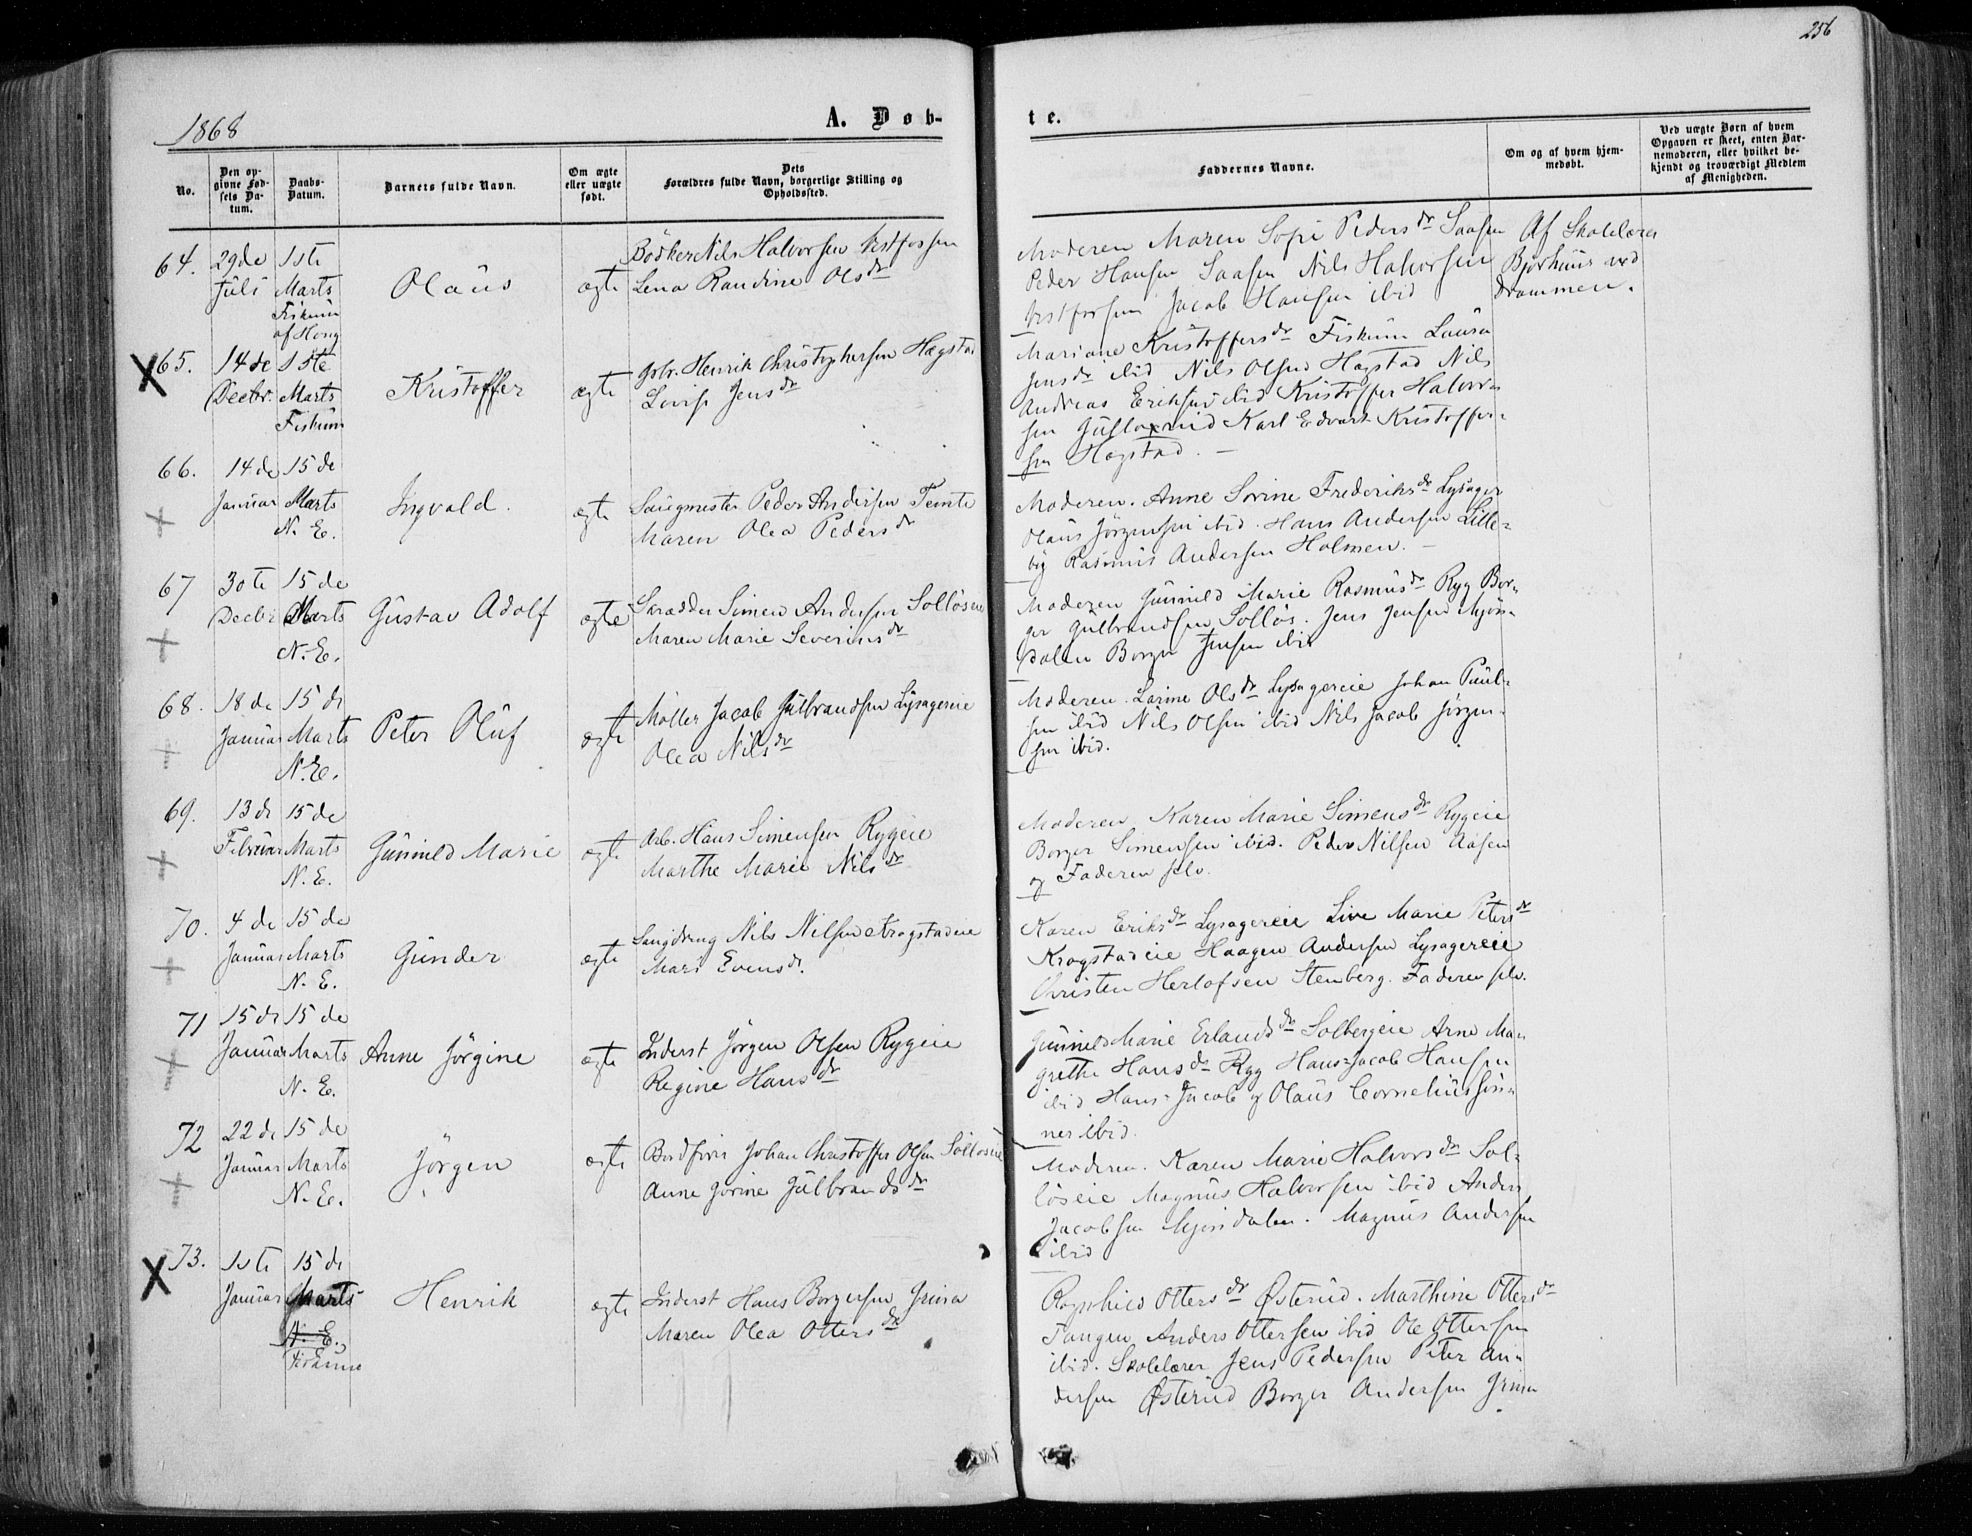 256
1868
A. Døb-
te.
No.
Den op-
givne Fød-
sels Da-
tum.
Daabs-
Datum.
Barnets fulde Navn.
Om ægte
eller uægte
født.
Dets
Forældres fulde Navn, borgerlige Stilling og
Opholdssted.
Faddernes Navne.
Om og af hvem hjem-
medøbt.
Ved uægte Børn af hvem
Opgaven er skeet, enten Bar-
nemoderen, eller hvilket be-
kjendt og troværdigt Medlem
af Menigheden.
64.
29de
Juli
1ste
Marts
Fiskum
af Houg
Olaus
ægte
Bödker Nils Halvorsen Vestfossen
Lena Randine Olsdr
Moderen Maren Sofie Pedersdr Saasen
Peder Hansen Saasen Nils Halvorsen
Vestfossen Jacob Hansen ibid
Af Skolelærer
Bjorhuus ved
Drammen.
X 65.
14de
Decbr.
1ste
Marts
Fiskum
Kristoffer
ægte
Gbr. Henrik Christophersen Hægstad
Livise Jensdr
Mariane Kristoffersdr Fiskum Laura
Jensdr ibid Nils Olsen Hægstad Nils
Andreas Eriksen ibid Kristoffer Halvor-
sen Gusloxrud Karl Edvart Kristoffer-
sen Hægstad.
66.
14de
Januar
15de
Marts
N. E.
Ingvald.
ægte
Saugmester Peder Andersen Temte
Maren Olea Pedersdr
Moderen. Anne Sorine Frederiksdr Lysager
Olaus Jörgensen ibid. Hans Andersen Lille-
by Rasmus Andersen Holmen.
67
30te
Decbr
15de
Marts
N. E.
Gustav Adolf
ægte
Skrædder Simen Andersen Sollöseie
Maren Marie Severinsdr
Moderen Gunnild Marie Rasmusdr Ryg Bor-
ger Gulbrandsen Sollös. Jens Jensen Mjön-
dalen Borger Jensen ibid
68.
18de
Januar
15de
Marts
N. E.
Peter Oluf
ægte
Möller Jacob Gulbrandsen Lysagereie
Olea Nilsdr
Moderen. Larine Olsdr Lysagereie Johan Paul-
sen ibid Nils Olsen ibid Nils Jacob Jörgen-
sen ibid.
69.
13de
Februar
15de
Marts
N. E.
Gunnild Marie
ægte
Arb. Hans Simensen Rygeie
Marthe Marie Nilsdr
Moderen Karen Marie Simensdr Rygeie
Borger Simensen ibid. Peder Nilsen Aasen
og Faderen selv.
70.
4de
Januar
15de
Marts
N. E.
Gunder
ægte
Saugdreng Nils Nilsen Krogstadeie
Mari Evensdr.
Karen Eriksdr Lysagereie Live Marie Petersdr
Krogstadeie Haagen Andersen Lysagereie
Christen Herlofsen Stenberg. Faderen selv.
71
15de
Januar
15de
Marts
N. E.
Anne Jörgine
ægte
Inderst Jörgen Olsen Rygeie
Regine Hansdr
Gunnild Marie Erlandsdr Solbergeie Anne Ma-
grethe Hansdr Ryg Hans Jacob Hansen
ibid Hans Jacob og Olaus Corneliussön-
ner ibid.
72
22de
Januar
15de
Marts
N. E.
Jörgen
ægte
Johan Christoffer Olsen Sollöseie
Anne Jörine Gulbrandsdr
Moderen. Karen Marie Halvorsdr Sol-
löseie Magnus Halvorsen ibid Anders
Jacobsen Mjöndalen. Magnus Andersen
ibid
X 73.
1ste
Januar
15de
Marts
N. E.
Fiskum
Henrik
ægte
Inderst Hans Borgersen Grima
Maren Olea Ottersdr
Ragnhild Ottersdr Østerud. Marthine Ottersdr
Tangen, Anders Ottersen ibid Ole Ottersen
ibid. Skolelærer Jens Pedersen Peter An-
dersen Østerud Borger Andersen Grima